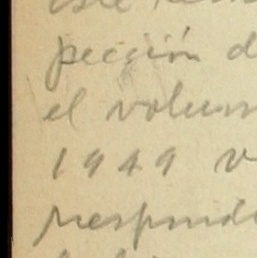 este
pección d
el volum
1949 v
respond